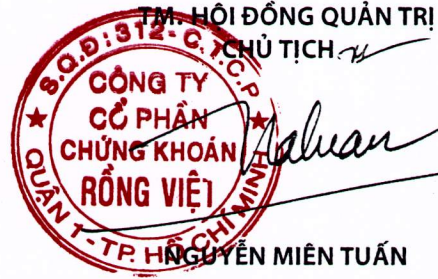 TM. HỘI ĐỒNG QUẢN TRỊ
CHỦ TỊCH
S.Q.Đ: 312- C.T.C.P
CÔNG TY
CỔ PHẦN
CHỨNG KHOÁN
RỒNG VIỆT
QUẬN 1 - TP. HỒ CHÍ MINH
NGUYỄN MIÊN TUẤN